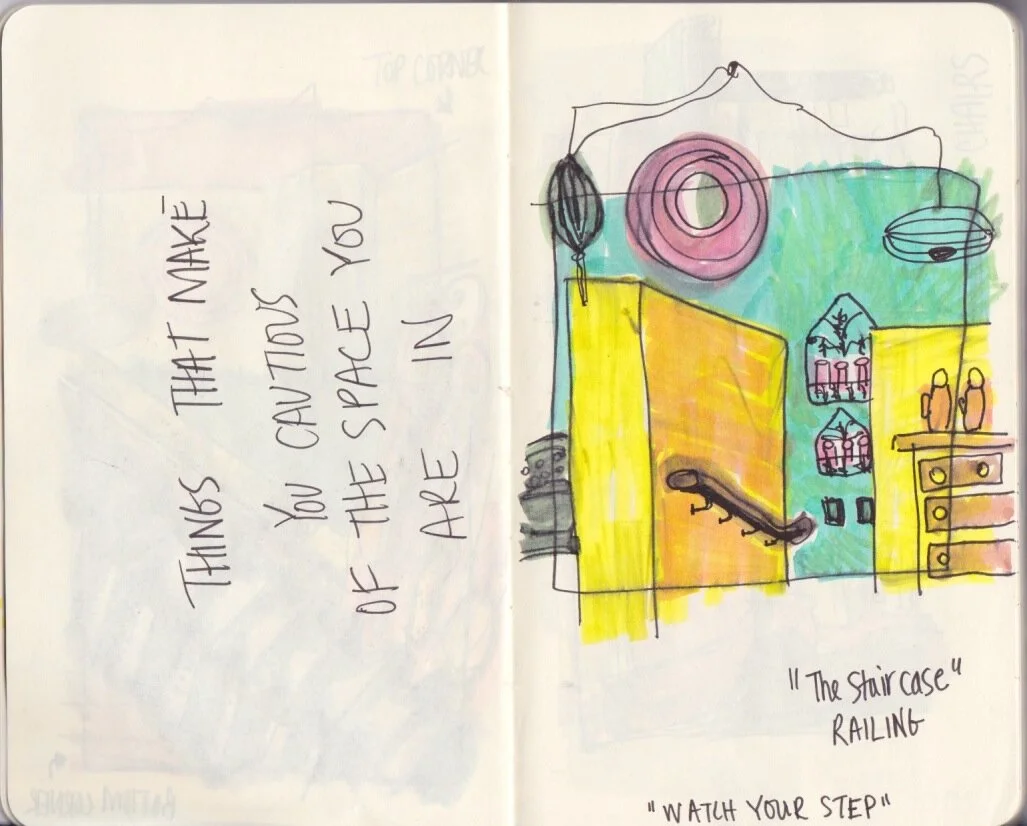 THINGS THAT MAKE
YOU CAUTIOUS
OF THE SPACE YOU
ARE IN
"The Staircase"
RAILING
"WATCH YOUR STEP"